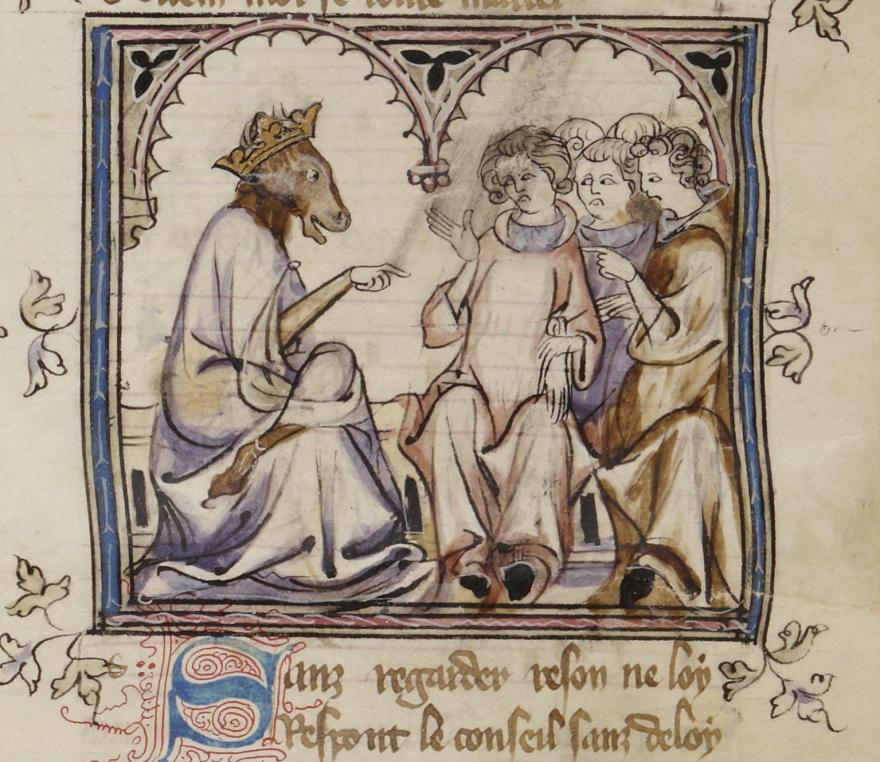 Sanz regarder reson ne loy
Respont le conseil sanz deloy